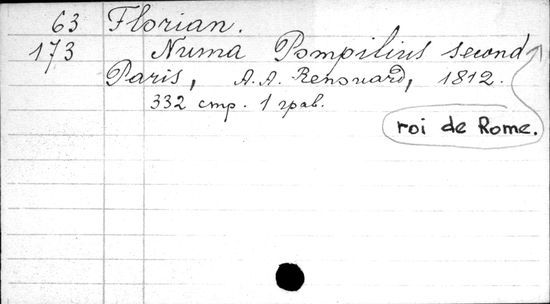 63 Florian.
173 Numa Pompilius second
Paris, A.A. Renouard, 1812.
332 стр. 1 грав.
roi de Rome.